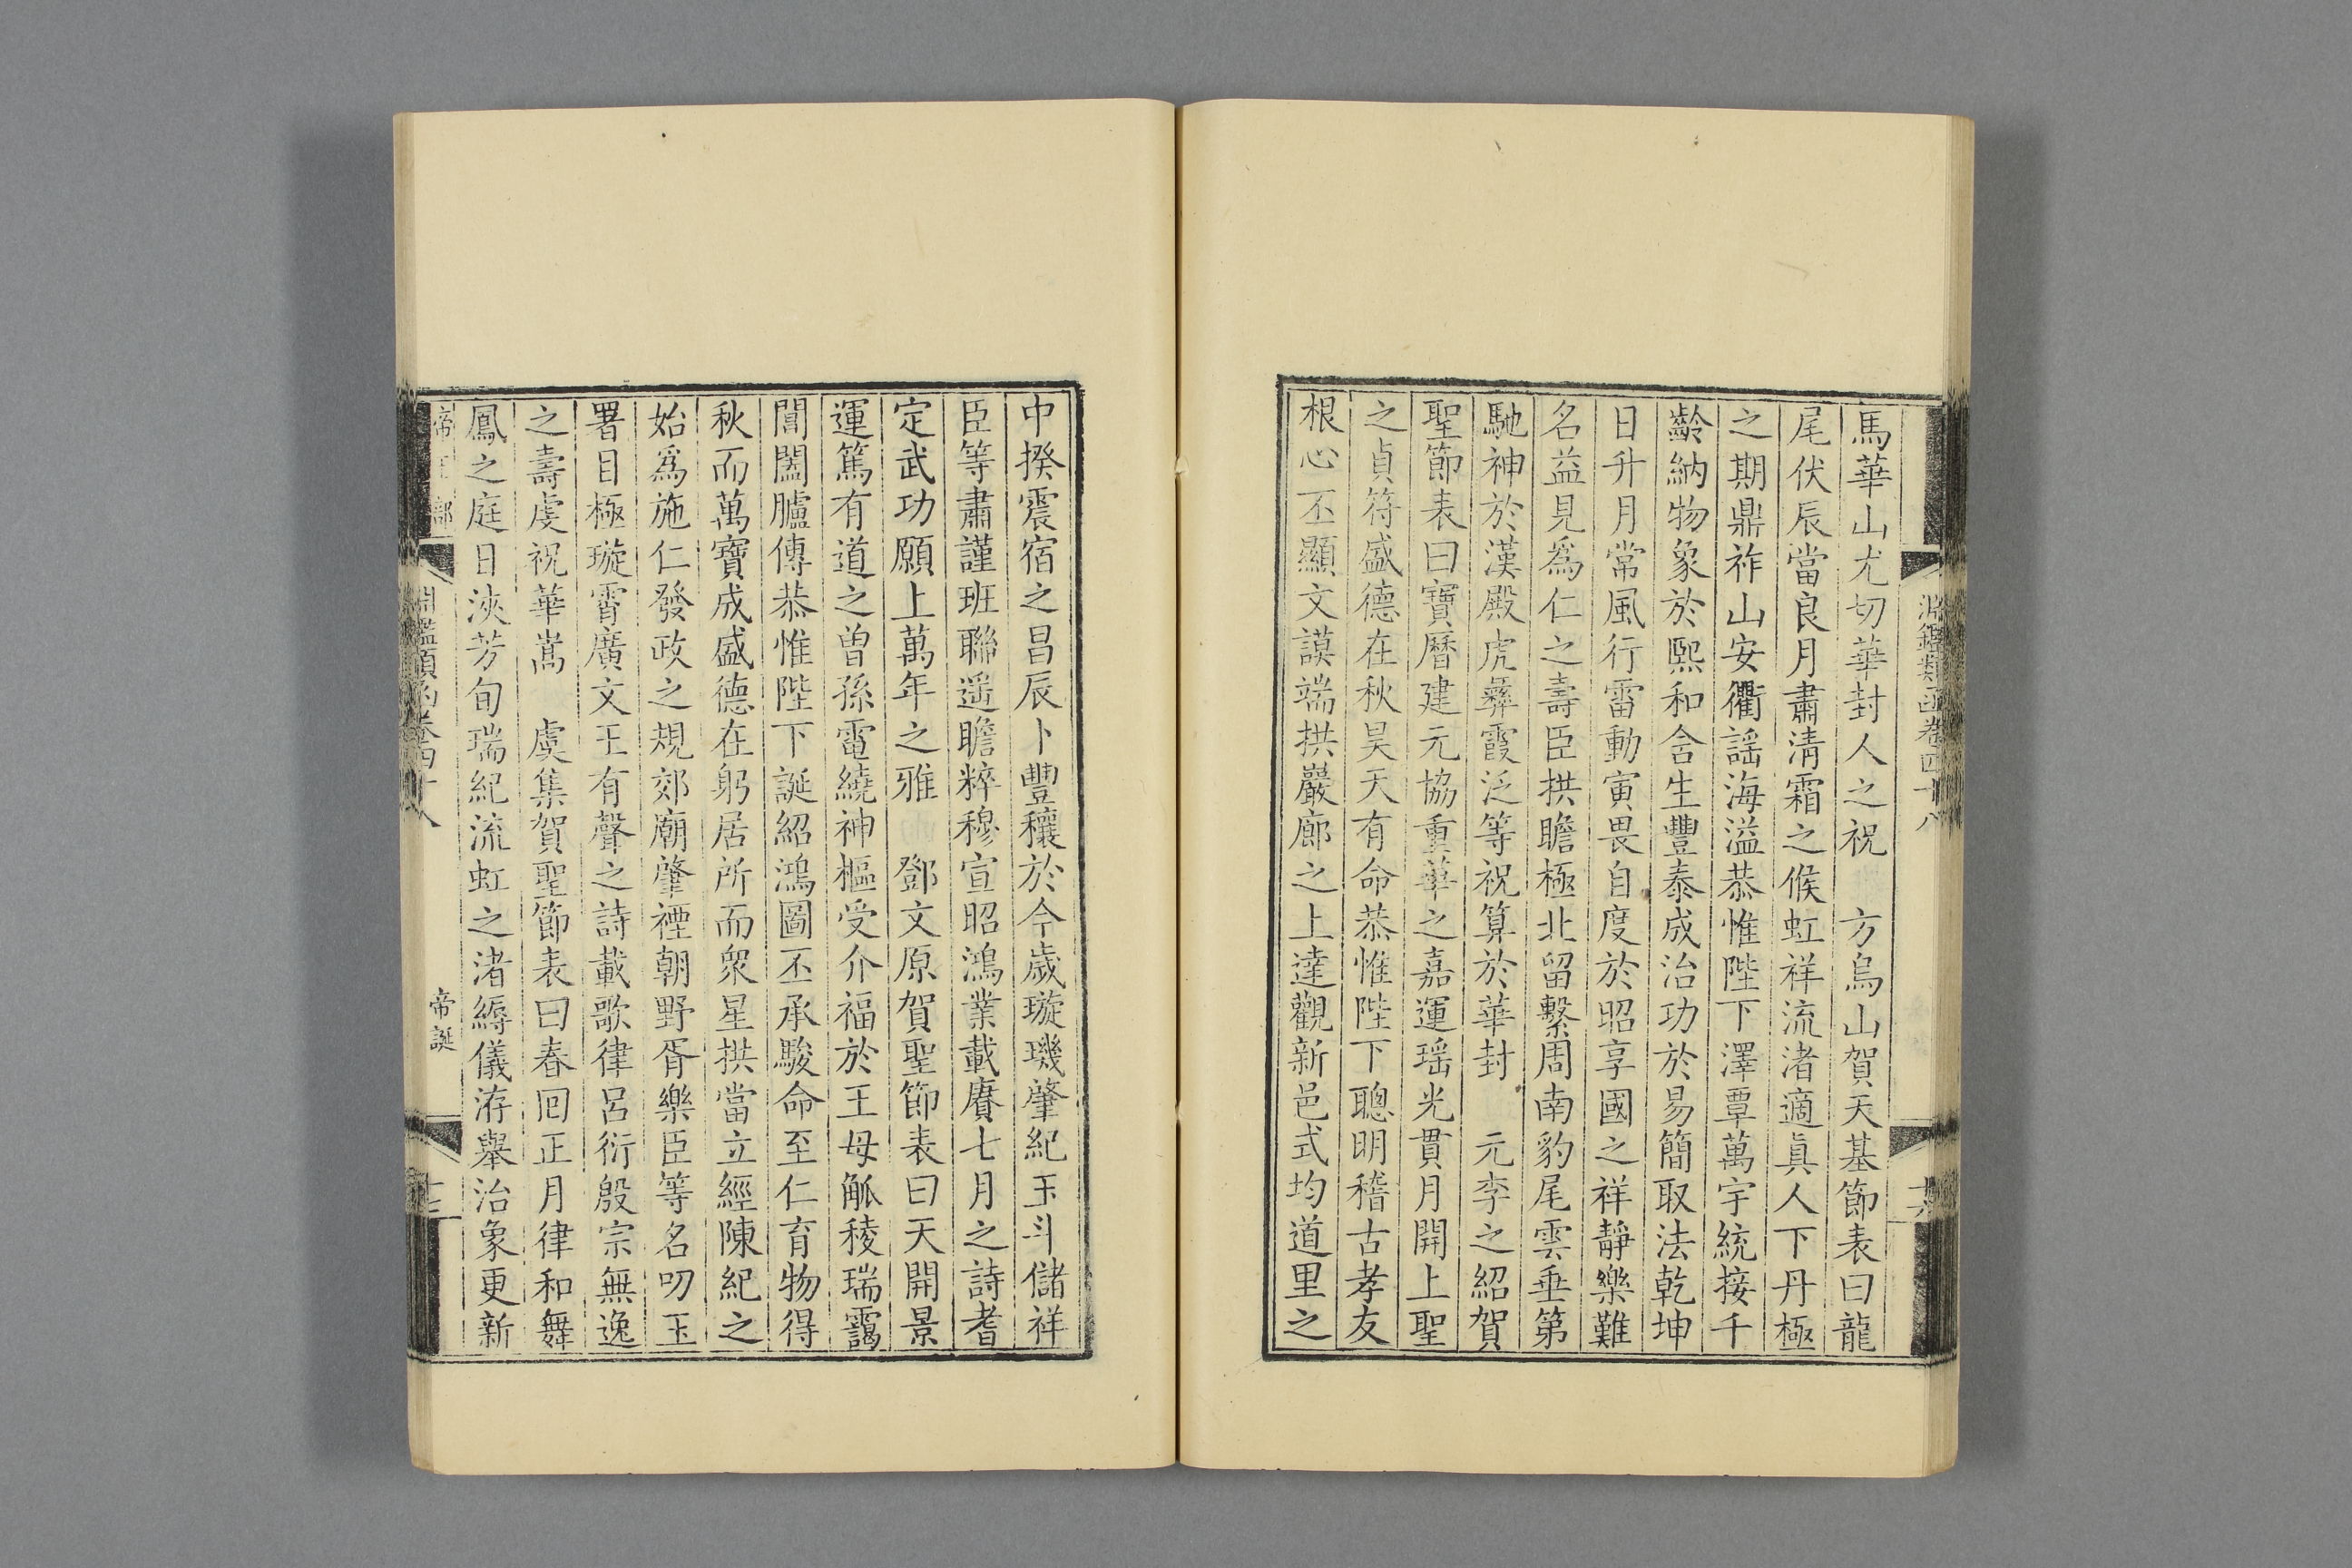 淵鑑類函卷四十八
馬華山尤切華封人之祝　方烏山賀天基節表曰龍
尾伏辰當良月肅清霜之候虹祥流渚適真人下丹極
之期鼎祚山安衢謠海溢恭惟陛下澤覃萬宇統接千
齡納物象於熙和含生豐泰成治功於易簡取法乾坤
日升月常風行雷動寅畏自度於昭享國之祥靜樂難
名益見為仁之壽臣拱瞻極北留繫周南豹尾雲垂第
馳神於漢殿虎彝霞泛等祝算於華封　元李之紹賀
聖節表曰寶曆建元協重華之嘉運瑤光貫月開上聖
之貞符盛德在秋昊天有命恭惟陛下聰明稽古孝友
根心丕顯文謨端拱巖廊之上達觀新邑式均道里之
中揆震宿之昌辰卜豐穰於今歲璇璣肇紀玉斗儲祥
臣等肅謹班聯遥瞻粹穆宣昭鴻業載賡七月之詩耆
定武功願上萬年之雅　鄧文原賀聖節表曰天開景
運篤有道之曾孫電繞神樞受介福於王母觚稜瑞靄
閶闔臚傳恭惟陛下誕紹鴻圖丕承駿命至仁育物得
秋而萬寶成盛德在躬居所而衆星拱當立經陳紀之
始爲施仁發政之規郊廟肇禋朝野胥樂臣等名叨玉
署目極璇霄廣文王有聲之詩載歌律呂衍殷宗無逸
之壽虔祝華嵩　虞集賀聖節表曰春回正月律和舞
鳳之庭日浹芳旬瑞紀流虹之渚縟儀洊舉治象更新
帝王部
淵鑑類函卷四十八
帝誕